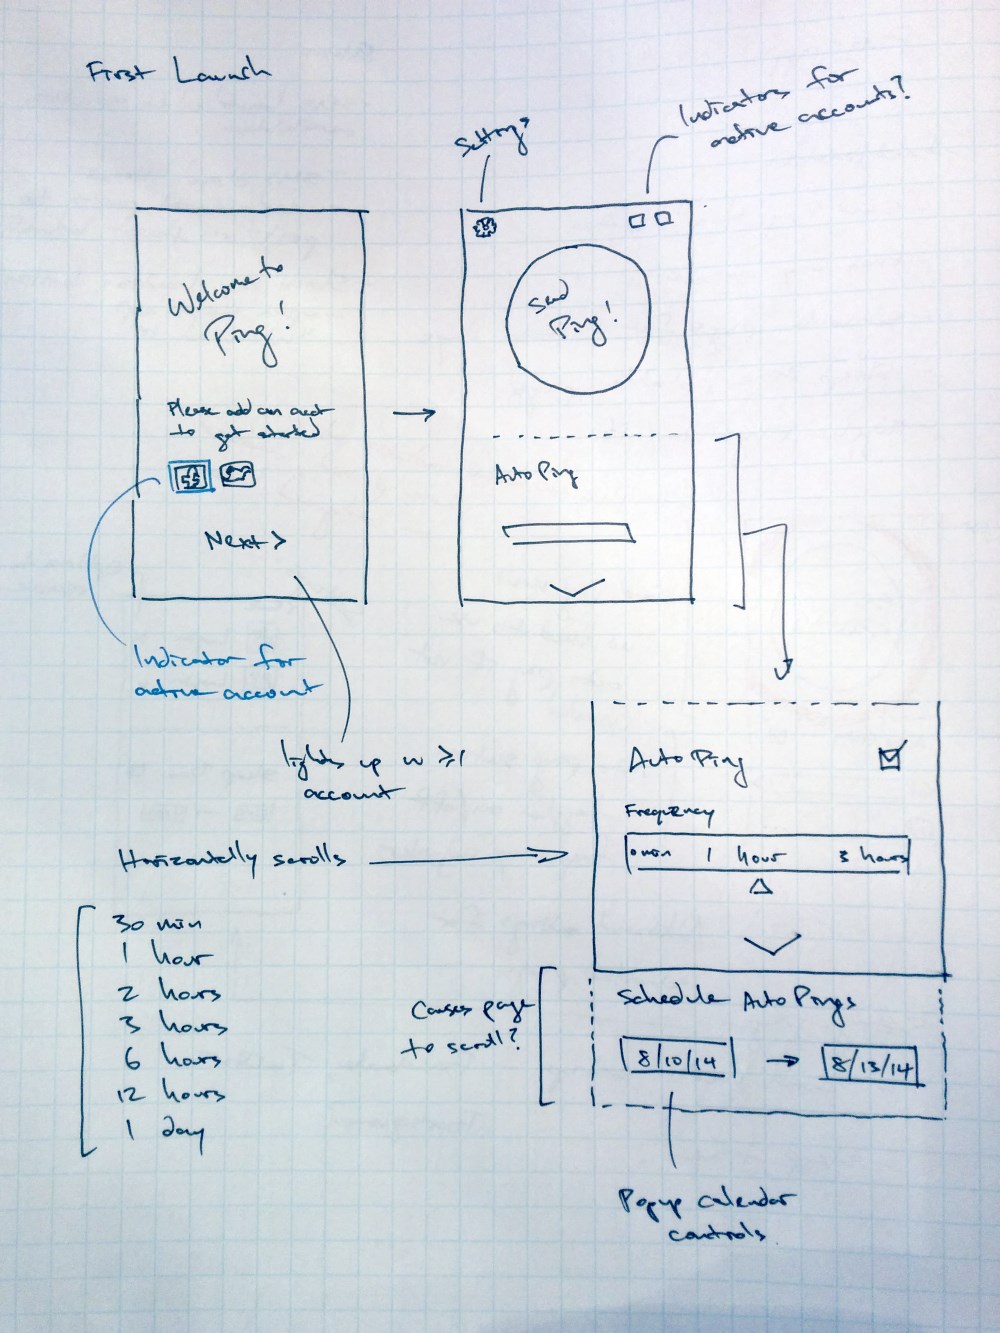 First Launch
Settings
Indicators for
active accounts?
Welcome to
Ping!
Please add an acct
to get started
Next >
Send
Ping!
AutoPing
Indicator for
active account
lights up w ≥1
account
AutoPing
Frequency
0 min 1 hour 3 hours
Horizontally scrolls
30 min
1 hour
2 hours
3 hours
6 hours
12 hours
1 day
Causes page
to scroll?
Schedule AutoPings
8/10/14 → 8/13/14
Popup calendar
controls